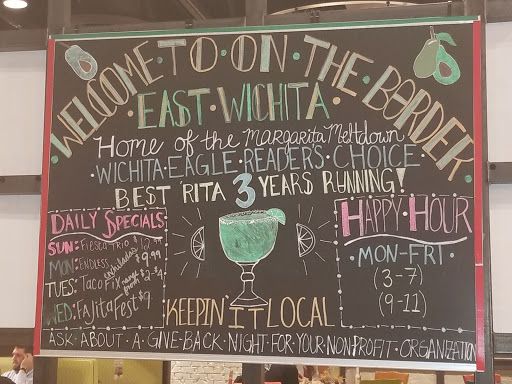 WELCOME·TO·ON·THE·BORDER
·EAST·WICHITA·
Home of the Margarita Meltdown
WICHITA·EAGLE·READER'S·CHOICE
BEST 'RITA 3 YEARS RUNNING!
DAILY SPECIALS
SUN: Fiesta TRIO $12.99
MON: ENDLESS enchiladas $9.99
TUES: Taco Fix $2-$4
WED: FAJitaFest $9
HAPPY·HOUR
·MON-FRI·
(3-7)
(9-11)
KEEPIN' IT LOCAL
ASK·ABOUT·A·GIVE-BACK·NIGHT·FOR·YOUR·NONPROFIT·ORGANIZATION